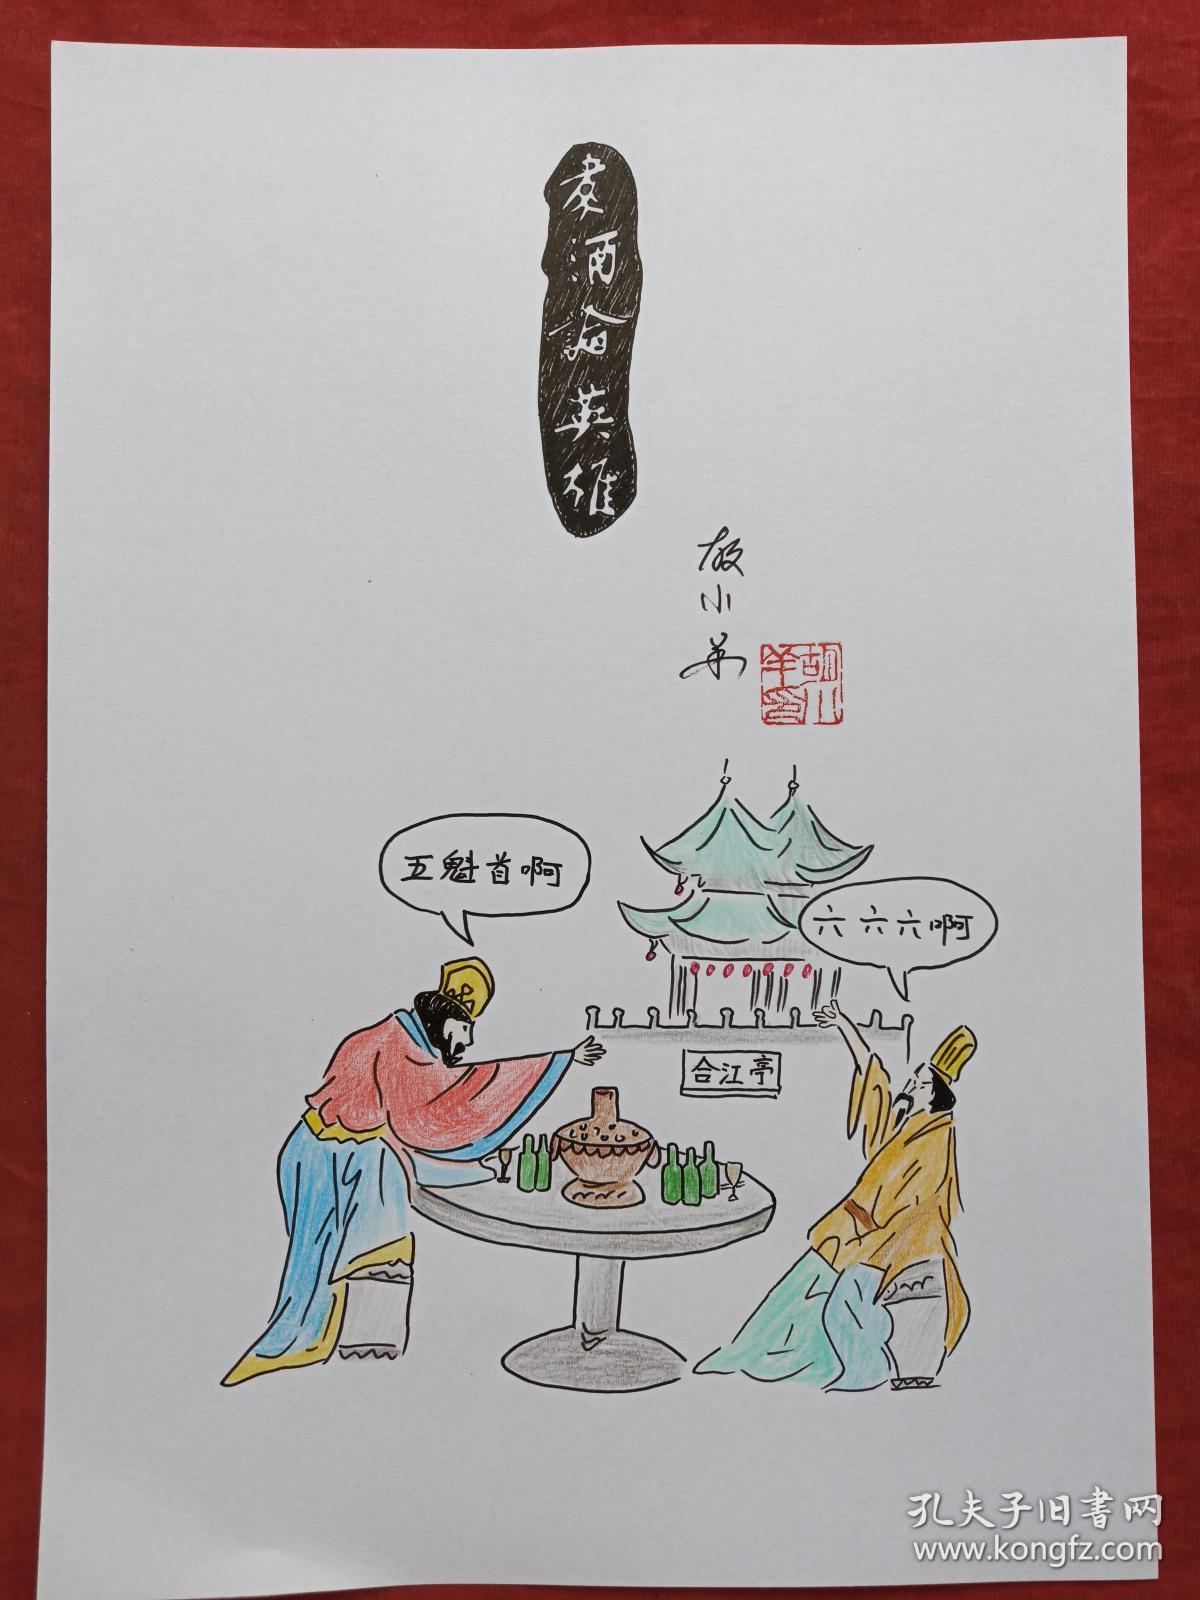 煮酒論英雄
五魁首啊
六六六啊
合江亭
孔夫子旧書网
www.kongfz.com